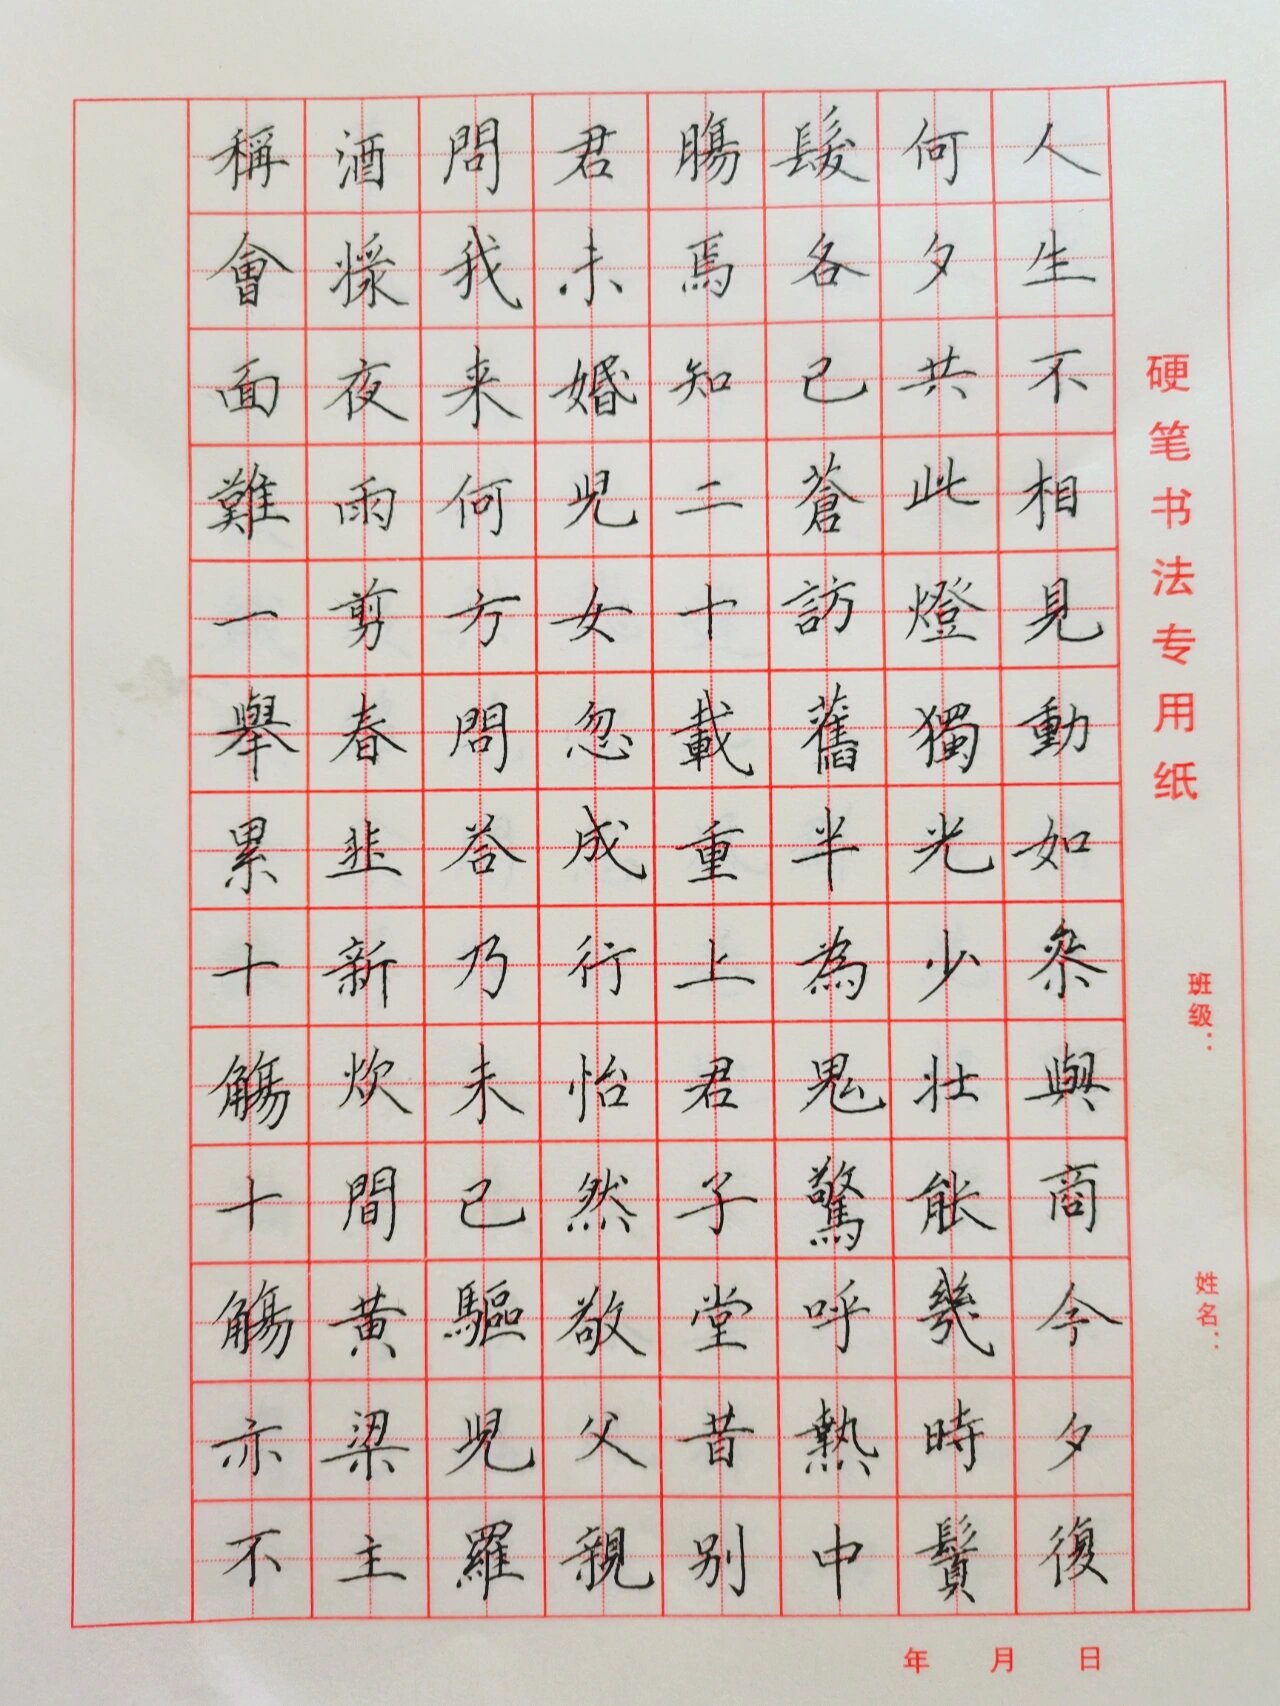 硬笔书法专用纸
班级：
姓名：
人生不相見動如叅與商今夕復
何夕共此燈獨光少壯能幾時鬢
髮各已蒼訪舊半為鬼驚呼熱中
腸焉知二十載重上君子堂昔别
君未婚兒女忽成行怡然敬父親
問我来何方問荅乃未已驅兒羅
酒漿夜雨剪春韭新炊間黄梁主
稱會面難一舉累十觴十觴亦不
年 月 日